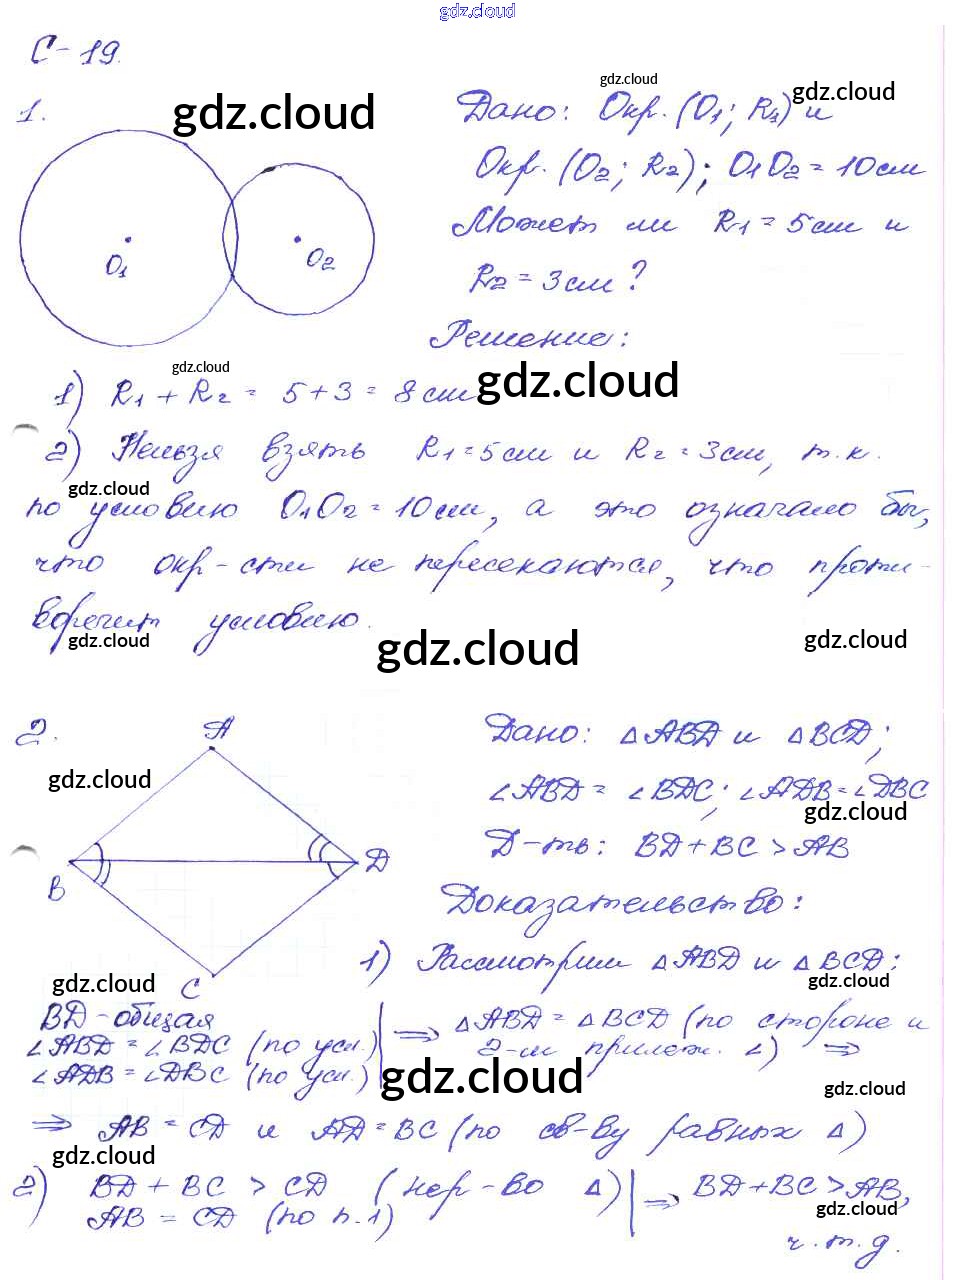 gdz.cloud
С-19.
1.
gdz.cloud
gdz.cloud
gdz.cloud
Дано: Окр. (O1; R1) и
Окр. (O2; R2); O1O2 = 10см
Может ли R1 = 5см и
R2 = 3см?
O1
O2
Решение:
gdz.cloud
gdz.cloud
1) R1 + R2 = 5 + 3 = 8см
2) Нельзя взять R1 = 5см и R2 = 3см, т.к.
gdz.cloud
по условию O1O2 = 10см, а это означало бы,
что окр-сти не пересекаются, что проти-
воречит условию.
gdz.cloud
gdz.cloud
gdz.cloud
2.
A
B
D
C
gdz.cloud
Дано: △ABD и △BCD;
∠ABD = ∠BDC; ∠ADB = ∠DBC
gdz.cloud
Д-ть: BD + BC > AB
Доказательство:
1) Рассмотрим △ABD и △BCD:
gdz.cloud
gdz.cloud
BD - общая
∠ABD = ∠BDC (по усл.)
∠ADB = ∠DBC (по усл.)
⇒ △ABD = △BCD (по стороне и
2-м прилеж. ∠) ⇒
gdz.cloud
gdz.cloud
⇒ AB = CD и AD = BC (по св-ву равных △)
gdz.cloud
2) BD + BC > CD (нер-во △)
AB = CD (по п.1)
⇒ BD + BC > AB,
gdz.cloud
ч.т.д.